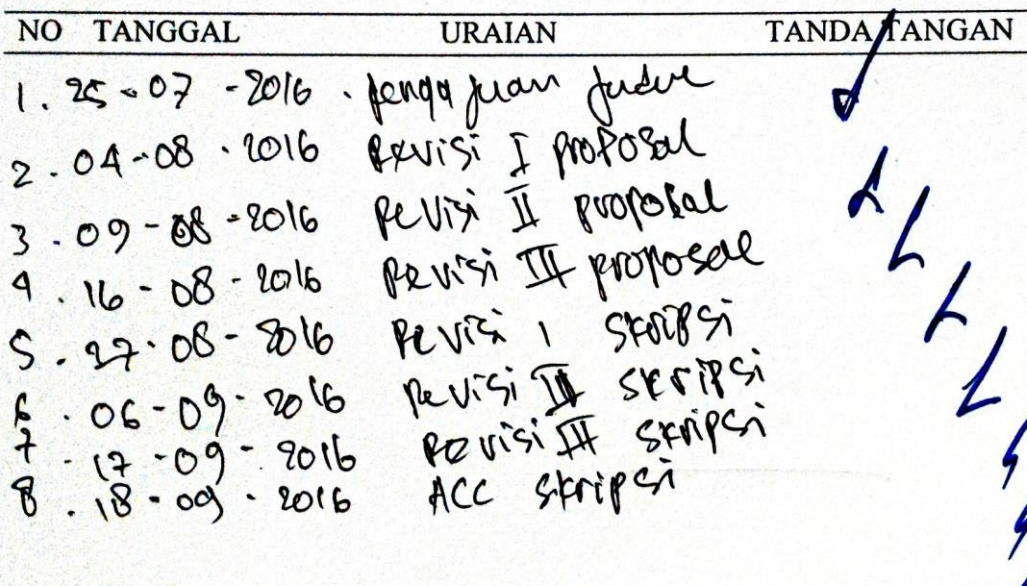 NO TANGGAL URAIAN TANDA TANGAN
1. 25-07-2016. pengajuan judul
2. 04-08-2016 Revisi I proposal
3. 09-08-2016 Revisi II proposal
4. 16-08-2016 Revisi III proposal
5. 27-08-2016 Revisi I skripsi
6. 06-09-2016 Revisi II skripsi
7. 17-09-2016 Revisi III skripsi
8. 18-09-2016 ACC skripsi